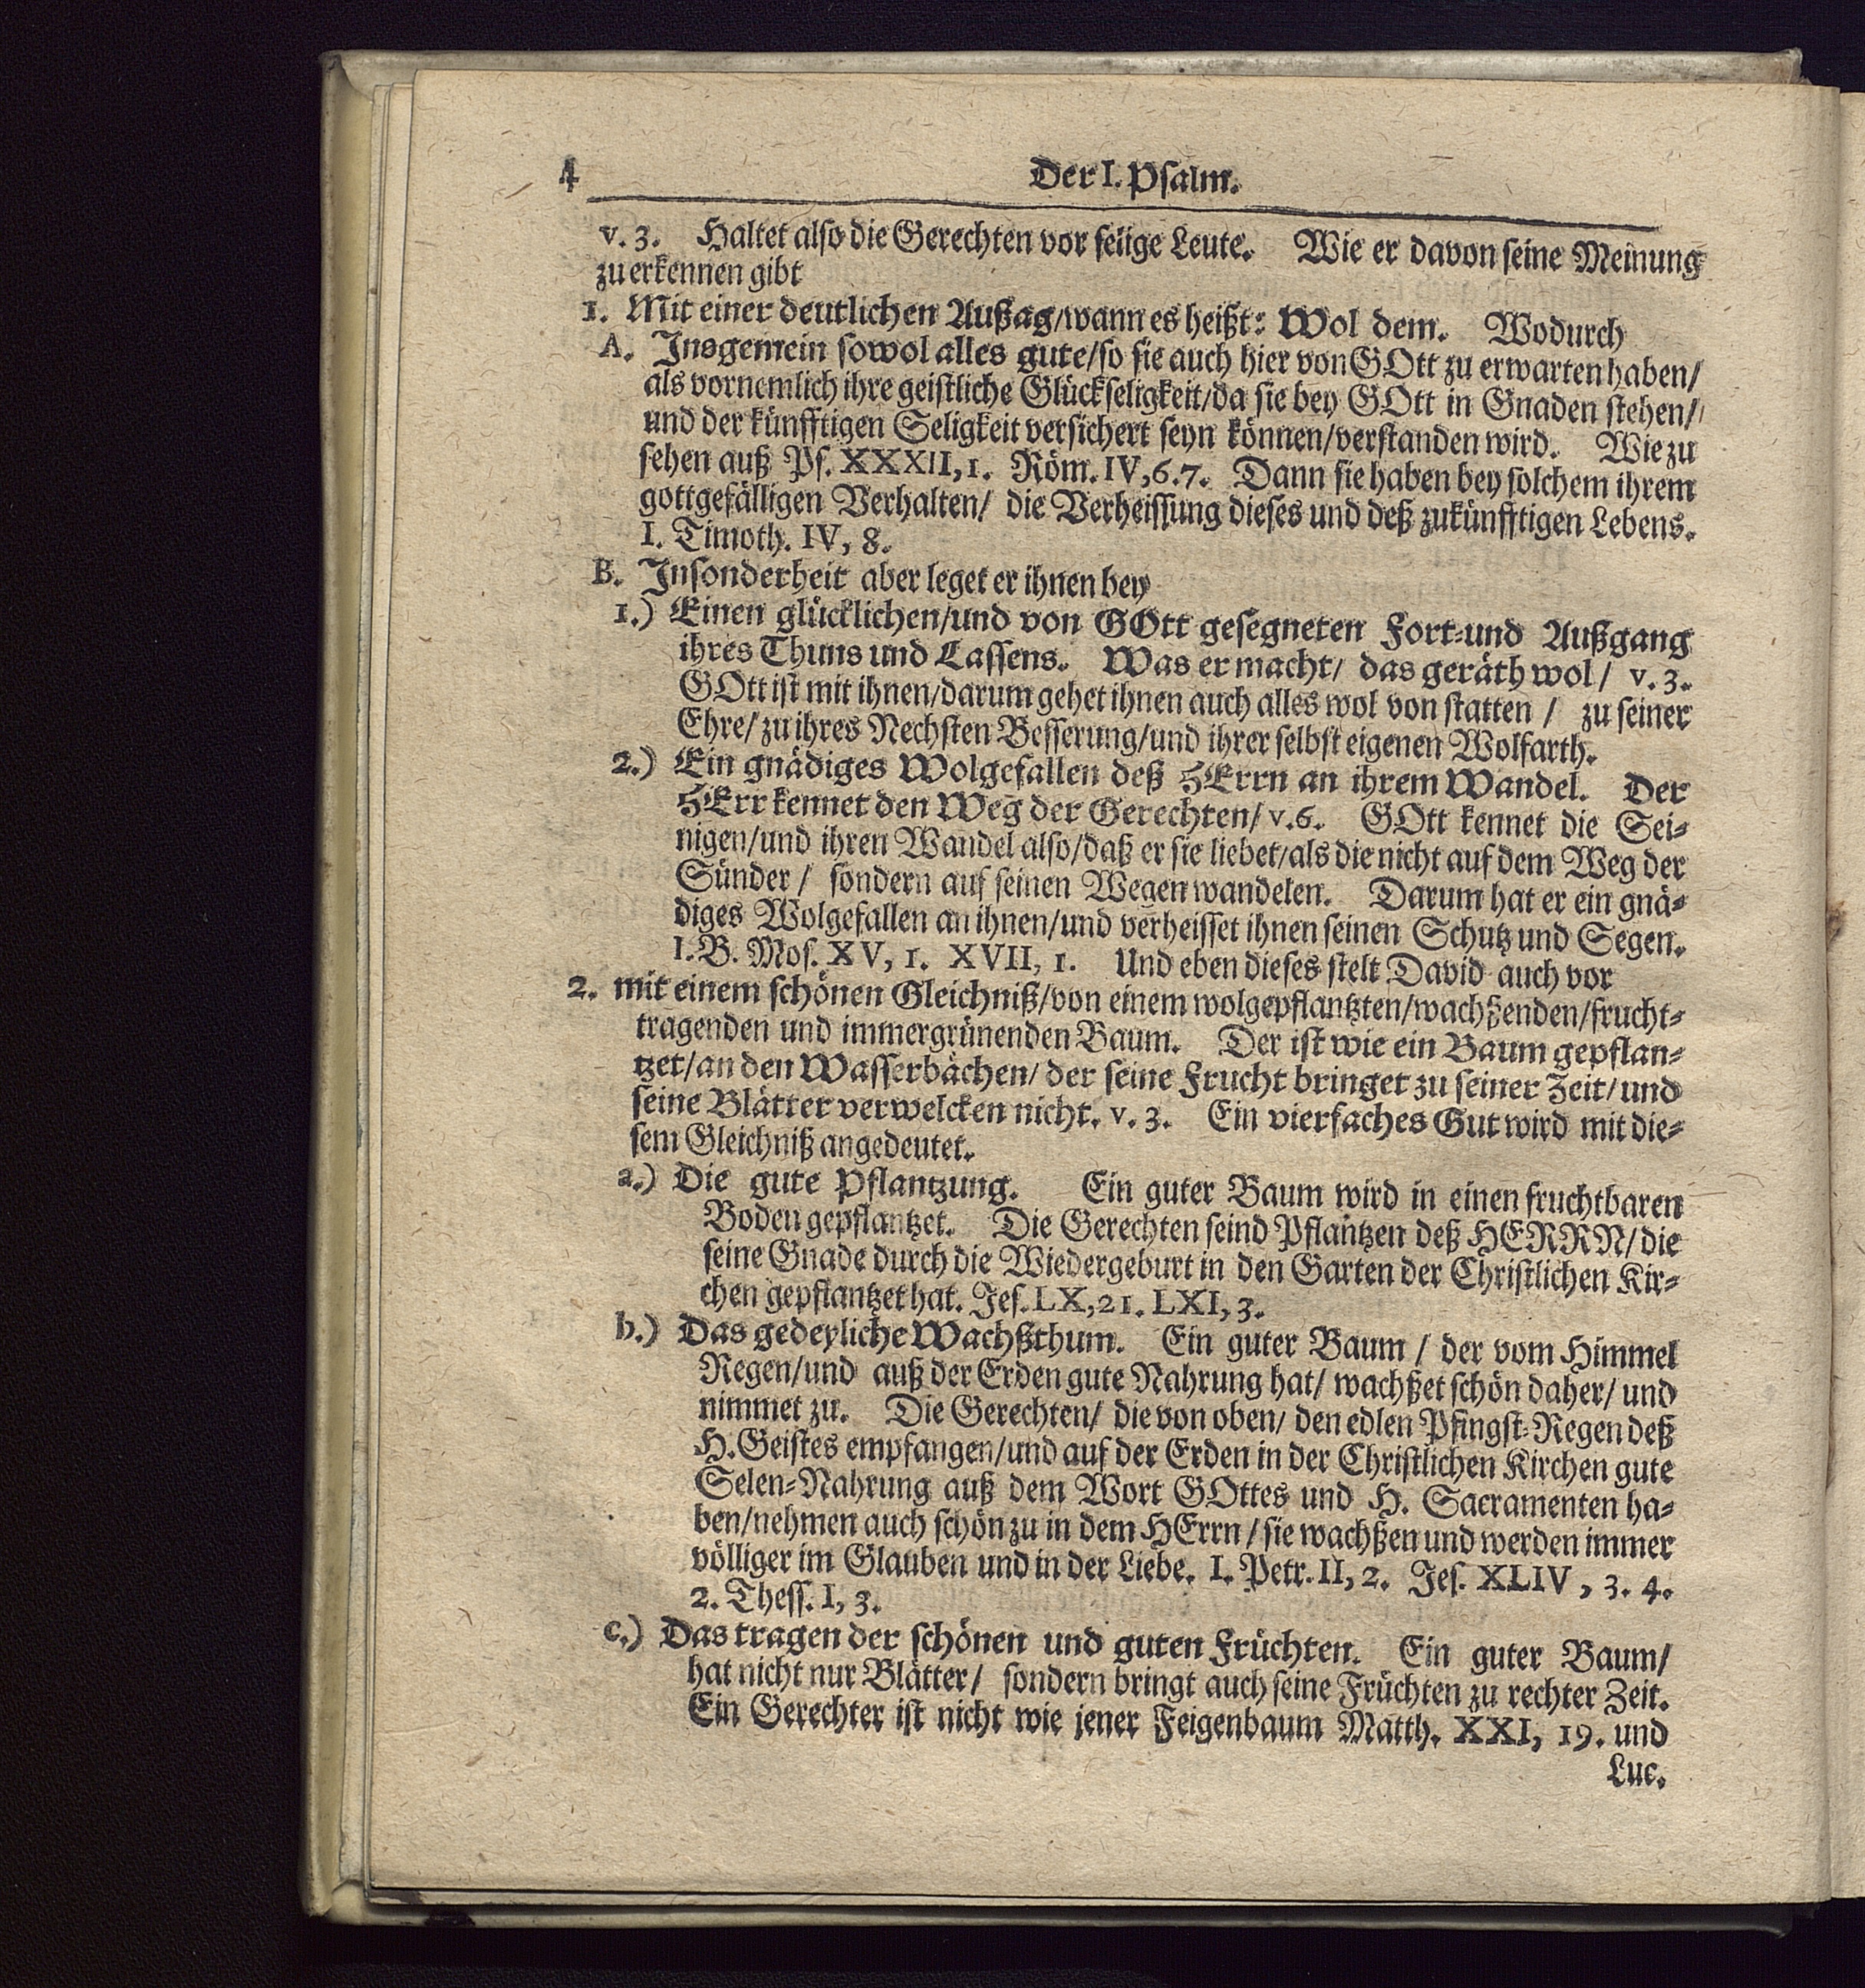 4 Der I. Psalm.
v. 3. Haltet also die Gerechten vor selige Leute. Wie er davon seine Meinung
zu erkennen gibt
1. Mit einer deutlichen Außag/wann es heißt: Wol dem. Wodurch
A. Insgemein sowol alles gute/so sie auch hier von GOtt zu erwarten haben/
als vornemlich ihre geistliche Glückseligkeit/da sie bey GOtt in Gnaden stehen/
und der künfftigen Seligkeit versichert seyn können/verstanden wird. Wie zu
sehen auß Ps. XXXII, 1. Röm. IV, 6. 7. Dann sie haben bey solchem ihrem
gottgefälligen Verhalten/ die Verheissung dieses und deß zukünfftigen Lebens.
I. Timoth. IV, 8.
B. Insonderheit aber leget er ihnen bey
1.) Einen glücklichen/und von GOtt gesegneten Fort-und Außgang
ihres Thuns und Lassens. Was er macht/ das geräth wol/ v. 3.
GOtt ist mit ihnen/darum gehet ihnen auch alles wol von statten / zu seiner
Ehre/ zu ihres Nechsten Besserung/und ihrer selbst eigenen Wolfarth.
2.) Ein gnädiges Wolgefallen deß HErrn an ihrem Wandel. Der
HErr kennet den Weg der Gerechten/ v. 6. GOtt kennet die Sei-
nigen/und ihren Wandel also/daß er sie liebet/als die nicht auf dem Weg der
Sünder / sondern auf seinen Wegen wandelen. Darum hat er ein gnä-
diges Wolgefallen an ihnen/und verheisset ihnen seinen Schutz und Segen.
I. B. Mos. XV, 1. XVII, 1. Und eben dieses stelt David auch vor
2. mit einem schönen Gleichniß/von einem wolgepflantzten/wachßenden/frucht-
tragenden und immergrünenden Baum. Der ist wie ein Baum gepflan-
tzet/an den Wasserbächen/ der seine Frucht bringet zu seiner Zeit/ und
seine Blätter verwelcken nicht. v. 3. Ein vierfaches Gut wird mit die-
sem Gleichniß angedeutet.
a.) Die gute Pflantzung. Ein guter Baum wird in einen fruchtbaren
Boden gepflantzet. Die Gerechten seind Pflantzen deß HERRN/ die
seine Gnade durch die Wiedergeburt in den Garten der Christlichen Kir-
chen gepflantzet hat. Jes. LX, 21. LXI, 3.
b.) Das gedeyliche Wachßthum. Ein guter Baum / der vom Himmel
Regen/und auß der Erden gute Nahrung hat/ wachßet schön daher/ und
nimmet zu. Die Gerechten/ die von oben/ den edlen Pfingst-Regen deß
H. Geistes empfangen/und auf der Erden in der Christlichen Kirchen gute
Selen-Nahrung auß dem Wort GOttes und H. Sacramenten ha-
ben/nehmen auch schön zu in dem HErrn / sie wachßen und werden immer
völliger im Glauben und in der Liebe. I. Petr. II, 2. Jes. XLIV, 3. 4.
2. Thess. I, 3.
c.) Das tragen der schönen und guten Früchten. Ein guter Baum/
hat nicht nur Blätter/ sondern bringt auch seine Früchten zu rechter Zeit.
Ein Gerechter ist nicht wie jener Feigenbaum Matth. XXI, 19. und
Luc.